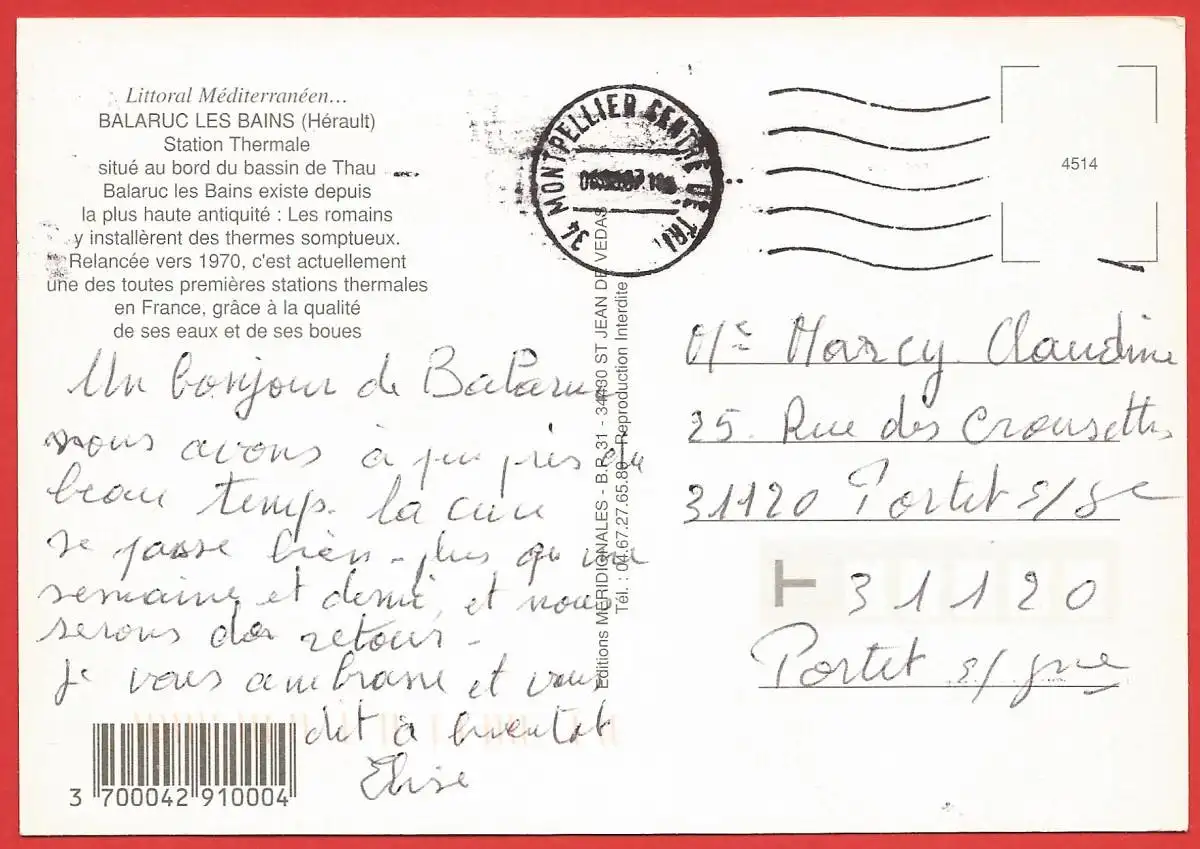 Littoral Méditerranéen...
BALARUC LES BAINS (Hérault)
Station Thermale
situé au bord du bassin de Thau
Balaruc les Bains existe depuis
la plus haute antiquité : Les romains
y installèrent des thermes somptueux.
Relancée vers 1970, c'est actuellement
une des toutes premières stations thermales
en France, grâce à la qualité
de ses eaux et de ses boues
Un bonjour de Balaruc
nous avons à peu près du
beau temps. la cure
se passe bien - plus qu'une
semaine et demie, et nous
serons de retour -
Je vous ambrasse et vous
dit à bientot
Elise
3 700042 910004
34 MONTPELLIER CENTRE DE TRI
Editions MERIDIONALES - B.P. 31 - 34430 ST JEAN DE VEDAS
Tél. : 04.67.27.65.89 - Reproduction Interdite
4514
Me Marcy Claudine
25. Rue des Crousettes
31120 Portet s/ge
T 31120
Portet s/gne